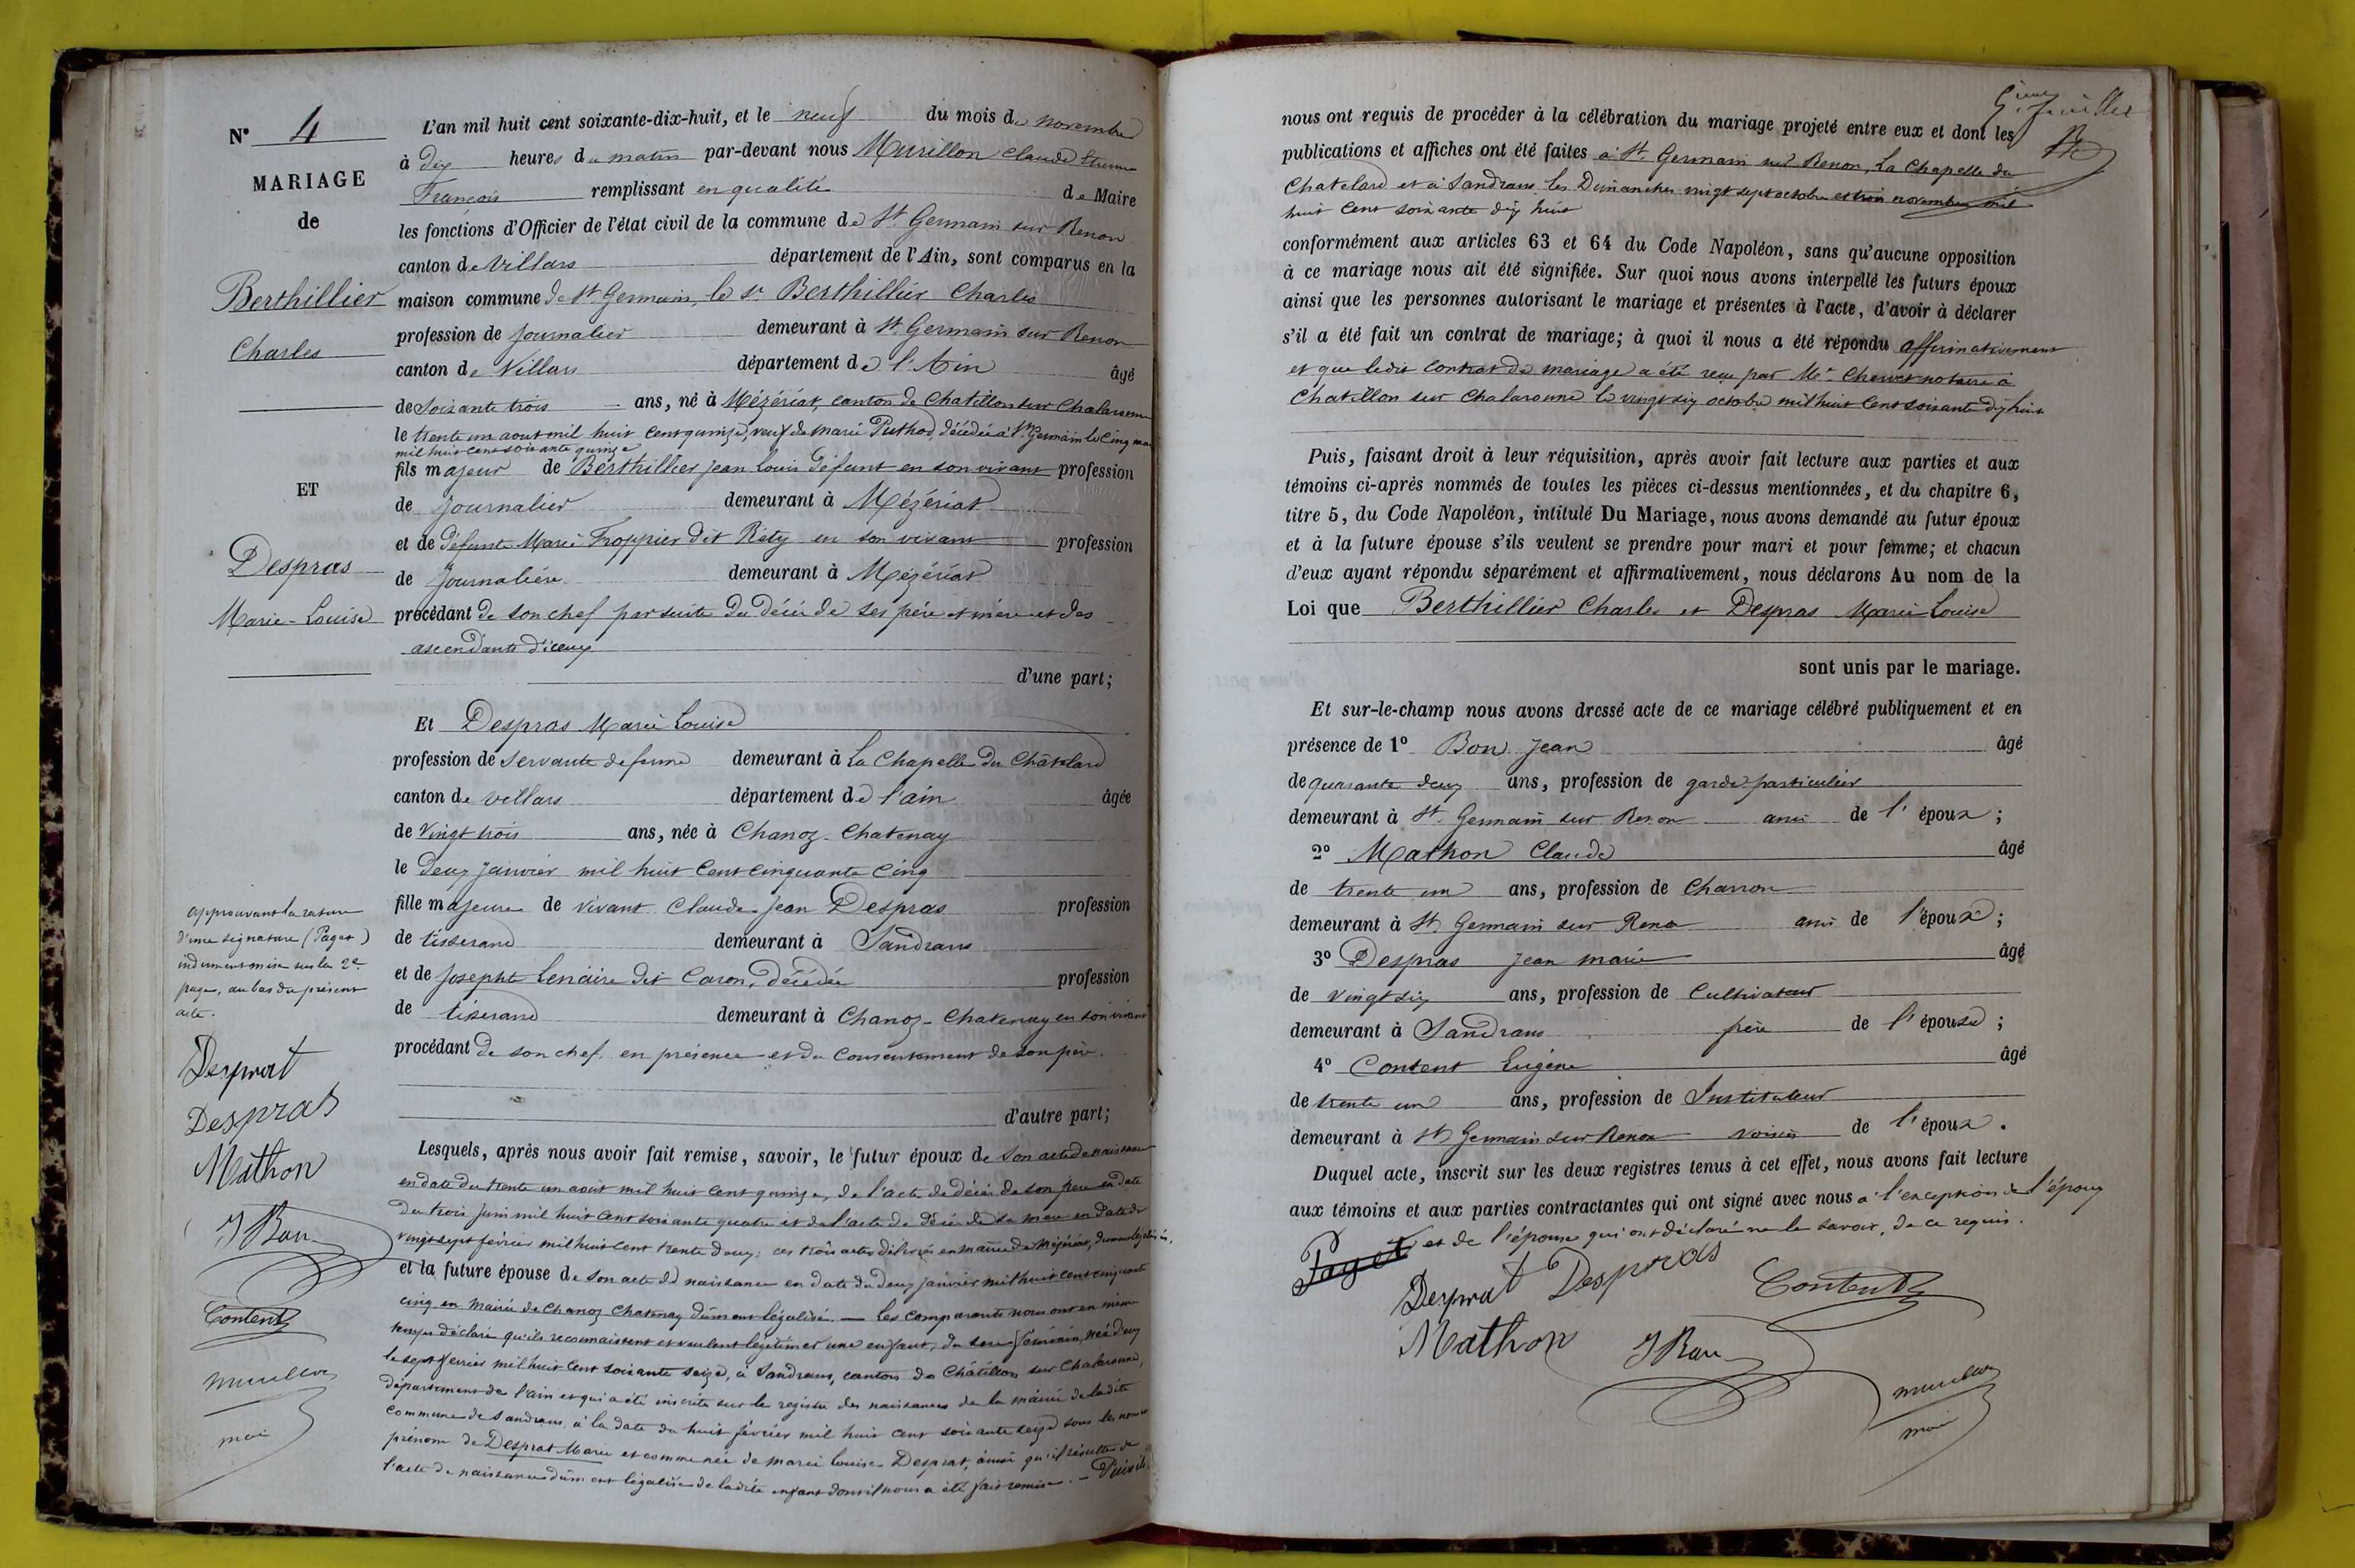 N° 4
MARIAGE
de
Berthillier
Charles
ET
Despras
Marie-Louise
approuvant la rature
d'une signature (Paget)
indument mise sur la 2e
page, au bas du présent
acte.
Desprat
Despras
Mathon
J Bon
Content
Murillon
L'an mil huit cent soixante-dix-huit, et le neuf du mois de novembre
à dix heures du matin par-devant nous Murillon Claude Etienne
François remplissant en qualité de Maire
les fonctions d'Officier de l'état civil de la commune de St Germain sur Renon
canton de Villars département de l'Ain, sont comparus en la
maison commune de St Germain, le sr Berthillier Charles
profession de journalier demeurant à St Germain sur Renon
canton de Villars département de l'Ain âgé
de soixante trois ans, né à Mézériat, canton de Chatillon sur Chalaronne
le trente un aout mil huit cent quinze, veuf de Marie Puthod, décédée à St Germain le cinq mai
mil huit cent soixante quinze
fils majeur de Berthillier Jean Louis défunt en son vivant profession
de journalier demeurant à Mézériat
et de défunte Marie Froppier dit Réty en son vivant profession
de journalière demeurant à Mézériat
procédant de son chef par suite du décès de ses père et mère et des
ascendants d'iceux
d'une part;
Et Despras Marie Louise
profession de servante de ferme demeurant à La Chapelle du Châtelard
canton de villars département de l'ain âgée
de vingt trois ans, née à Chanoz-Chatenay
le deux janvier mil huit cent cinquante cinq
fille majeure de vivant Claude-Jean Despras profession
de tisserand demeurant à Sandrans
et de Josephte Lenaire dit Caron, décédée profession
de tisserand demeurant à Chanoz-Chatenay en son vivant
procédant de son chef, en présence et du consentement de son père.
d'autre part;
Lesquels, après nous avoir fait remise, savoir, le futur époux de son acte de naissance
en date du trente un août mil huit cent quinze, de l'acte de décès de son père en date
du trois juin mil huit cent soixante quatre et de l'acte de décès de sa mère en date du
vingt sept février mil huit cent trente deux; ces trois actes délivrés en mairie de Mézériat, dument légalisés,
et la future épouse de son acte de naissance en date du deux janvier mil huit cent cinquante
cinq en mairie de Chanoz Chatenay dûment légalisé. — Les comparants nous ont en même
temps déclaré qu'ils reconnaissent et veulent légitimer une enfant, du sexe féminin, née d'eux
le sept février mil huit cent soixante seize, à Sandrans, canton de Châtillon sur Chalaronne,
département de l'ain et qui a été inscrite sur le registre des naissances de la mairie de la dite
commune de Sandrans, à la date du huit février mil huit cent soixante seize sous les nom et
prénom de Desprat Marie et comme née de marie Louise Desprat, ainsi qu'il résulte de
l'acte de naissance dûment légalisé de la dite enfant dont il nous a été fait remise. — Puis ils
5ième feuillet
nous ont requis de procéder à la célébration du mariage projeté entre eux et dont les
publications et affiches ont été faites à St Germain sur Renon, La Chapelle du
Chatelard et à Sandrans, les Dimanches vingt sept octobre et trois novembre mil
huit cent soixante dix huit
conformément aux articles 63 et 64 du Code Napoléon, sans qu'aucune opposition
à ce mariage nous ait été signifiée. Sur quoi nous avons interpellé les futurs époux
ainsi que les personnes autorisant le mariage et présentes à l'acte, d'avoir à déclarer
s'il a été fait un contrat de mariage; à quoi il nous a été répondu affirmativement
et que ledit contrat de mariage a été reçu par Me notaire à
Chatillon sur Chalaronne le vingt six octobre mil huit cent soixante dix huit
Puis, faisant droit à leur réquisition, après avoir fait lecture aux parties et aux
témoins ci-après nommés de toutes les pièces ci-dessus mentionnées, et du chapitre 6,
titre 5, du Code Napoléon, intitulé Du Mariage, nous avons demandé au futur époux
et à la future épouse s'ils veulent se prendre pour mari et pour femme; et chacun
d'eux ayant répondu séparément et affirmativement, nous déclarons Au nom de la
Loi que Berthillier Charles et Despras Marie Louise
sont unis par le mariage.
Et sur-le-champ nous avons dressé acte de ce mariage célébré publiquement et en
présence de 1° Bon Jean âgé
de quarante deux ans, profession de garde particulier
demeurant à St Germain sur Renon ami de l'époux;
2° Mathon Claude âgé
de trente un ans, profession de Charron
demeurant à St Germain sur Renon ami de l'époux;
3° Despras Jean marie âgé
de vingt six ans, profession de Cultivateur
demeurant à Sandrans frère de l'épouse;
4° Content Eugène âgé
de trente un ans, profession de Instituteur
demeurant à St Germain sur Renon voisin de l'époux.
Duquel acte, inscrit sur les deux registres tenus à cet effet, nous avons fait lecture
aux témoins et aux parties contractantes qui ont signé avec nous à l'exception de l'époux
et de l'épouse qui ont déclaré ne le savoir, de ce requis.
Paget
Desprat Despras Content
Mathon J Bon
Murillon